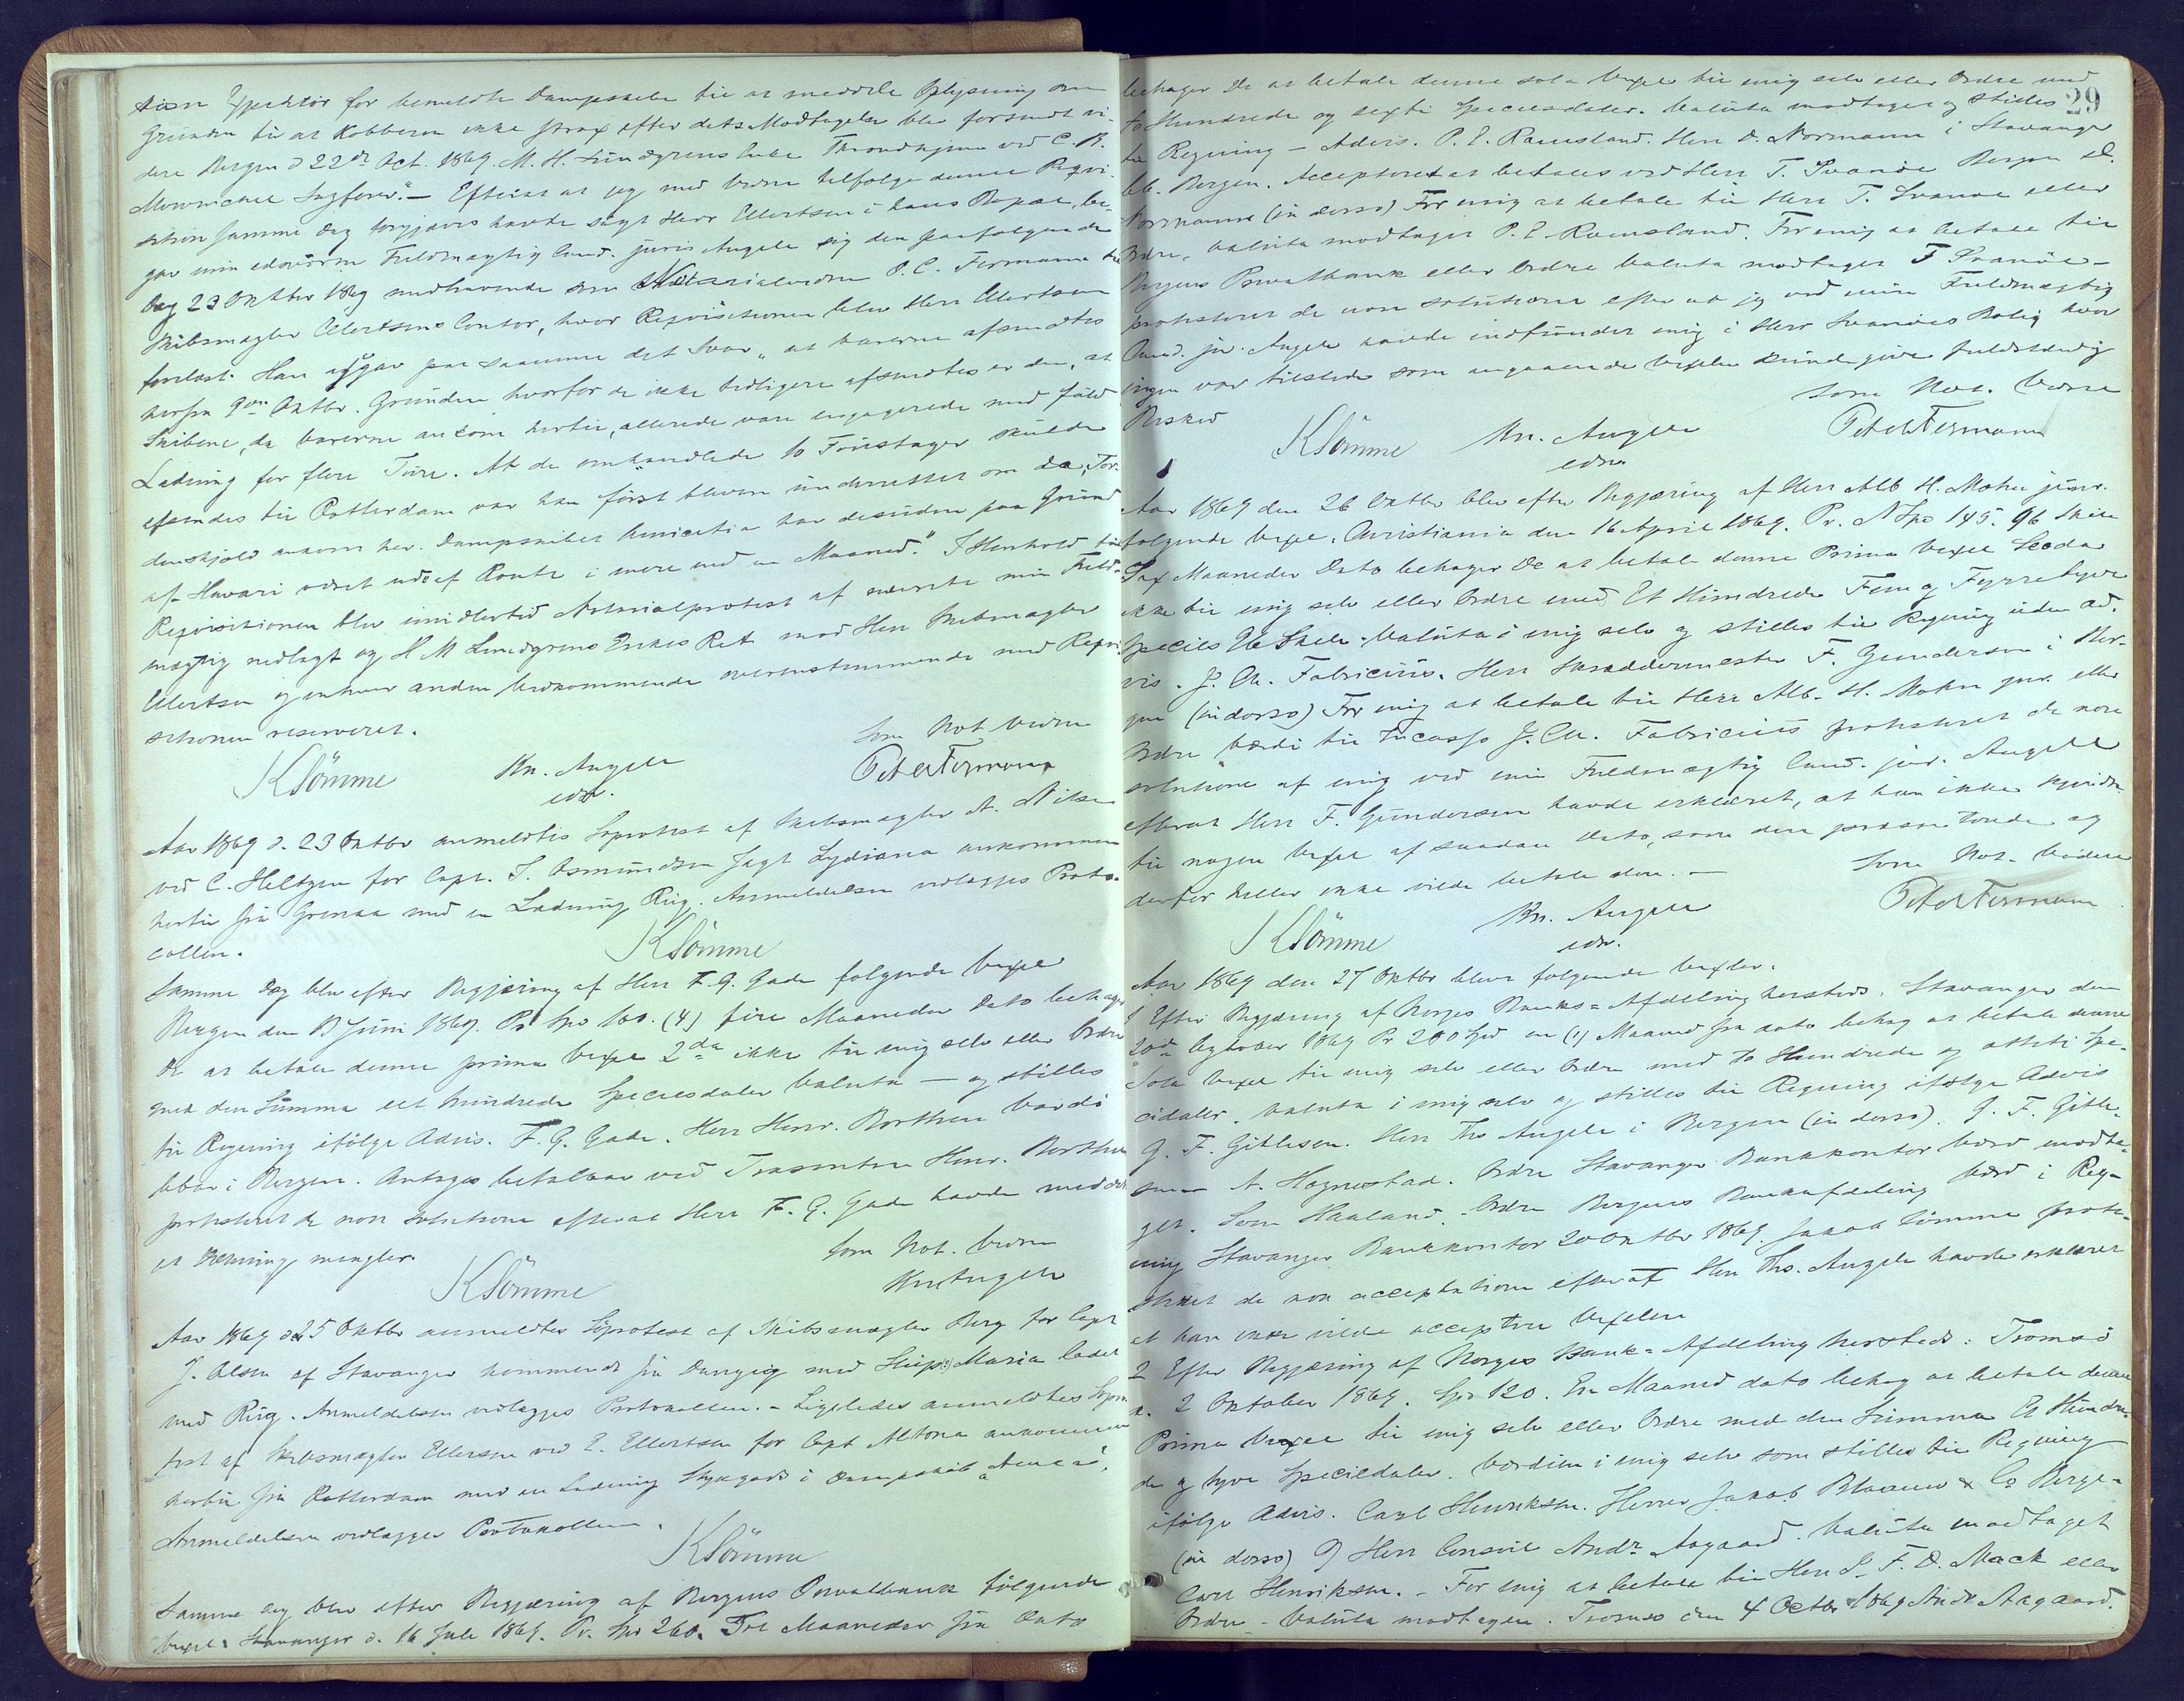 sion Expeditør for bemeldte Dampskibe til at meddele Oplysning om
Grunden til at Kobberen ikke strax efter dets Modtagelse blev forsendt vi-
dere Bergen d 22de Oct. 1869. M. H. Lundgrens Enke Throndhjem ved C. B.
Sagfører". – Efterat at jeg med Vidne tilfølge denne Reqvi-
sition samme Dag forgjæves havde søgt Herr Ellertsen i hans Bopæl, be-
gav min edsvorne Fuldmægtig Cand. juris Angell sig den paafølgende
Dag 23 Oktbr 1869 medhavende som Notarialvidne P. C. Fermann til
Skibsmægler Ellertsens Contor, hvor Reqvisitionen blev Herr Ellertsen
forelæst. Han afgav paa samme det Svar, "at Varerne afsendtes
herfra 9de Oktbr. Grunden hvorfor de ikke tidligere afsendtes er den, at
Skibene, da Varerne ankom hertil, allerede vare engagerede med fuld
Ladning for flere Ture. At de omhandlede 10 Foustager skulde
afsendes til Rotterdam var han først bleven underrettet om da, Tor-
denskjold ankom her. Dampskibet Amicitia har desuden paa Grund
af Havari været ude af Route i mere end en Maaned." I Henhold til
Reqvisitionen blev imidlertid Notarialprotest af nævnte min Fuld-
mægtig nedlagt og H M Lundgrens Enkes Ret mod Herr Skibsmægler
Ellertsen og enhver anden Vedkommende overensstemmende med Reqvi-
sitionen reserveret.
Som Not. Vidne
KLömme Kn. Angell Peter Fermann
edsv.
Aar 1869 d. 23 Oktbr anmeldtes Søprotest af Skibsmægler A. Nilsen
ved C. Heltzen for Capt. T. Osmundsen Jagt Lydiana ankommen
hertil fra Grenaa med en Ladning Rug. Anmeldelsen vedlægges Proto-
collen.
KLömme
Samme Dag blev efter Begjæring af Herr F. G. Gade følgende Vexel
Bergen den 13 Juni 1869. Pr Spd 100. (4) fire Maaneder Dato behager
De at betale denne prima Vexel 2da ikke til mig selv eller Ordre
med den Summa eet hundrede Speciesdaler Valuta – og stilles
til Regning ifølge Advis. F. G. Gade. Herr Henr. Borthen Vardö
bbar i Bergen. Antages betalbar ved Trasenten Henr. Borthen
protesteret de non solutione efterat Herr F. G. Gade havde meddelt
at Dækning mangler.
Som Not. Vidne
KLömme Kn Angell
Aar 1869 d 25 Oktbr anmeldtes Søprotest af Skibsmægler Berg for Capt
J. Olsen af Stavanger kommende fra Danzig med Skip: Maria ladet
med Rug. Anmeldelsen vedlægges Protokollen. – Ligeledes anmeldtes Søpro-
test af Skibsmægler Ellersen ved E. Ellertsen for Capt Altona ankommen
hertil fra Rotterdam med en Ladning Stykgods i Dampskib
Anmeldelsen vedlægges Protokollen.
KLömme
Samme Dag blev efter Begjæring af Bergens Privatbank følgende
Vexel: Stavanger d. 16 Juli 1869. Pr. Spd 260. Tre Maaneder fra Dato
29
behager De at betale denne sola Vexel til mig selv eller Ordre med
To Hundrede og sexti Speciesdaler. Valuta modtaget og stilles
til Regning – Advis. P. E. Ramsland. Herr D. Normann i Stavanger
bb. Bergen. Accepteret at betales ved Herr T. Svanöe Bergen D.
Normann (in dorso) For mig at betale til Herr T. Svanøe eller
Ordre, Valuta modtaget P. E. Ramsland. For mig at betale til
Bergens Privatbank eller Ordre Valuta modtaget T Svanöe –
protesteret de non solutione efter at jeg ved min Fuldmægtig
Cand. jur. Angell havde indfundet mig i Herr Svanöes Bolig hvor
ingen var tilstede som angaaende Vexelen kunde give fuldstændig
Besked
Som Not. Vidne
KLömme Kn. Angell Peter Fermann
edsv.
Aar 1869 den 26 Oktbr blev efter Begjæring af Herr Alb H. Mohn junr.
følgende Vexel. Christiania den 16 April 1869. Pr. N Spd 145. 96 Skill
Sex Maaneder Dato behager De at betale denne Prima Vexel Secda
ikke til mig selv eller Ordre med Et Hundrede Fem og Fyrretyve
Species 96 Skill. Valuta i mig selv og stilles til Regning uden Ad-
vis. J. Ch. Fabricius. Herr Skræddermester F. Gundersen i Ber-
gen (in dorso) For mig at betale til Herr Alb. H. Mohn jnr. eller
Ordre Værdi til Incasso J. Ch. Fabricius protesteret de non
solutione af mig ved min Fuldmægtig Cand. jur. Angell
efterat Herr F. Gundersen havde erklæret, at han ikke kjendte
til nogen Vexel af saadan Dato, som den præsenterede og
derfor heller ikke vilde betale den. –
Som Not. Vidne
KLömme Kn. Angell Peter Fermann
edsv.
Aar 1869 den 27 Oktbr bleve følgende Vexler.
1 Efter Begjæring af Norges Banks-Afdeling hersteds. Stavanger den
20de October 1869 Pr 280 Spd en (1) Maaned fra dato behag at betale denne
Sola Vexel til mig selv eller Ordre med To Hundrede og otteti Spe-
cidaler. Valuta i mig selv og stilles til Regning ifølge Advis
G. F. Gitlesen. Herr Ths Angell i Bergen (in dorso). G. F. Gitle-
sen A. Hognestad. Ordre Stavanger Bankkontor Værd modta-
get. Som Haaland. Ordre Bergens Bankafdeling Værd i Reg-
ning Stavanger Bankkontor 20 Oktbr 1869. Jakob Sömme prote-
steret de non acceptatione efterat Herr Ths. Angell havde erklæret
at han ikke vilde acceptere Vexelen
2 Efter Begjæring af Norges Bank-Afdeling hersteds: Tromsö
d. 2 Oktober 1869. Spd 120. En Maaned dato behag at betale denne
Prima Vexel til mig selv eller Ordre med den Summa Et Hundre-
de og tyve Speciedaler. Værdien i mig selv som stilles til Regning
ifølge Advis. Carl Henriksen. Herrer Jakob Blaauw & Co Bergen
(in dorso) Herr Consul Andr Aagaard. Valuta modtaget
Carl Henriksen. – For mig at betale til Herr L. F. D. Mack eller
Ordre – Valuta modtagen. Tromsö den 4 Octbr 1869 Andr Aagaard.